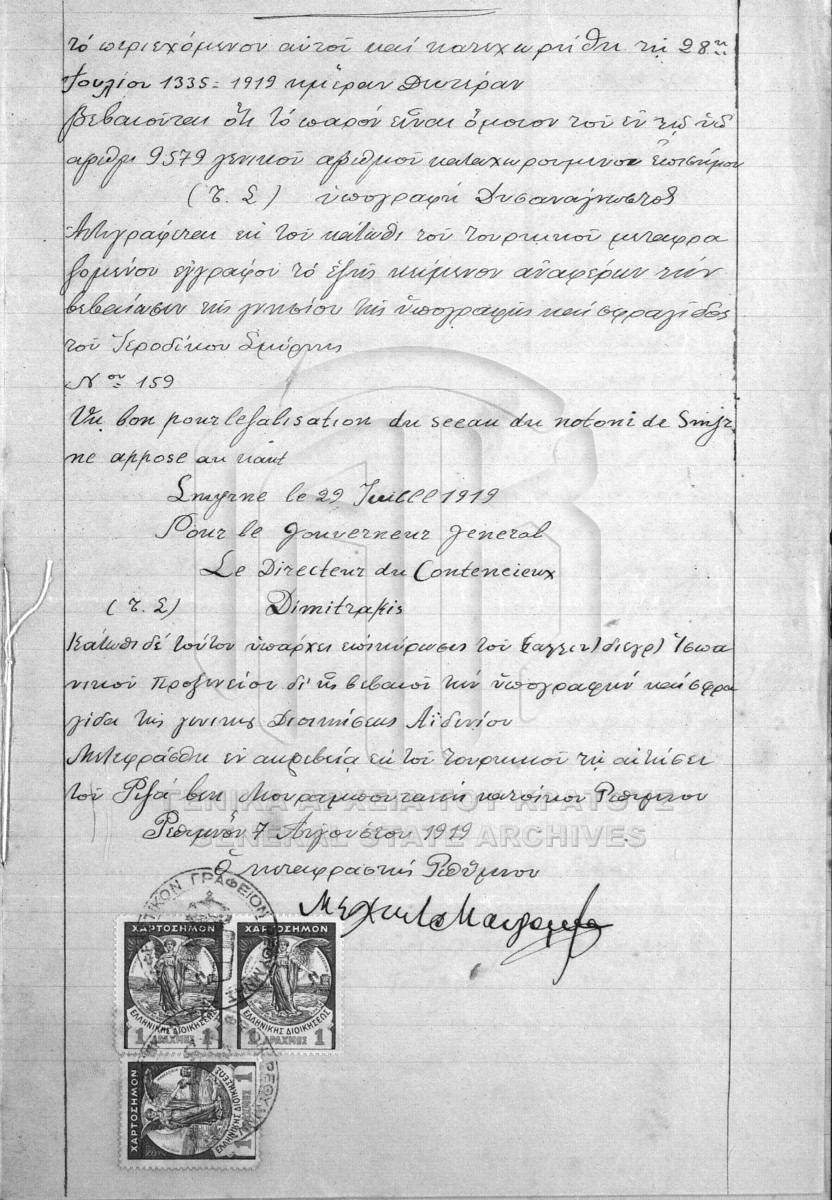 τό περιεχόμενον αυτού καί κατεχωρήθη τη 28η
Ιουλίου 1335=1919 ημέραν Δευτέραν
βεβαιούται ότι τό παρόν είναι όμοιον τού εν τω υπ
αριθμ 9579 γενικού αριθμού καταχωρουμένου επισήμου
(Τ. Σ) υπογραφή Δυσανάγνωστος
Αντιγράφεται εκ τού κάτωθι τού τουρκικού μεταφρα
ζομένου εγγράφου τό εξής κείμενον αναφέρων τήν
βεβαίωσιν της γνησίου της υπογραφής καί σφραγίδος
τού Ιεροδίκου Σμύρνης
Nον 159
Vu bon pour lefalisation du sceau du notoni de Smyr
ne appose au haut
Smyrne le 29 Juillel 1919
Pour le Gouverneur General
Le Directeur du Contencieux
(Τ. Σ) Dimitrakis
Κάτωθι δέ τούτου υπάρχει επικύρωσις τού Ισπα
νικού προξενείου δι ης βεβαιοί τήν υπογραφήν καί σφρα
γίδα της γενικης Διοικήσεως Αϊδινίου
Μετεφράσθη εν ακριβεία εκ τού τουρκικού τη αιτήσει
τού Ριζά βεη κατοίκου Ρεθύμνου
Ρέθυμνον 7 Αυγούστου 1919
Ο μεταφραστής Ρεθύμνου
ΓΕΝΙΚΑ ΑΡΧΕΙΑ ΤΟΥ ΚΡΑΤΟΥΣ
GENERAL STATE ARCHIVES
ΓΡΑΦΕΙΟΝ
ΧΑΡΤΟΣΗΜΟΝ
ΕΛΛΗΝΙΚΗΣ ΔΙΟΙΚΗΣΕΩΣ
1 ΔΡΑΧΜΗΣ 1
ΧΑΡΤΟΣΗΜΟΝ
ΕΛΛΗΝΙΚΗΣ ΔΙΟΙΚΗΣΕΩΣ
1 ΔΡΑΧΜΗΣ 1
ΧΑΡΤΟΣΗΜΟΝ
ΕΛΛΗΝΙΚΗΣ ΔΙΟΙΚΗΣΕΩΣ
1 ΔΡΑΧΜΗΣ 1